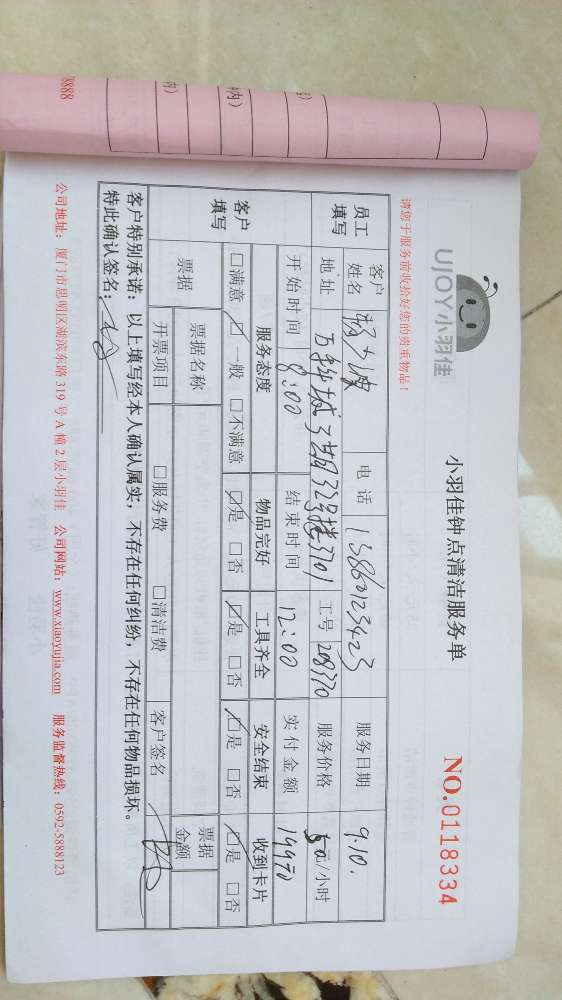 UJOY小羽佳
小羽佳钟点清洁服务单
NO.0118334
请您于服务前收拾好您的贵重物品！
员工填写
客户姓名 杨少波 电话 13860123423 服务日期 9.10.
地址 万科城3期32号楼3701 工号 208370 服务价格 元/小时
开始时间 8:00 结束时间 12:00 实付金额 199元
客户填写
服务态度 物品完好 工具齐全 安全结束 收到卡片
□满意 ☑一般 □不满意 ☑是 □否 ☑是 □否 ☑是 □否 ☑是 □否
票据 票据名称 票据金额
开票项目 □服务费 □清洁费 客户签名
客户特别承诺：以上填写经本人确认属实，不存在任何纠纷，不存在任何物品损坏。
特此确认签名：
公司地址：厦门市思明区湖滨东路 319 号 A 幢 2 层小羽佳 公司网站：www.xiaoyujia.com 服务监督热线：0592-5888123